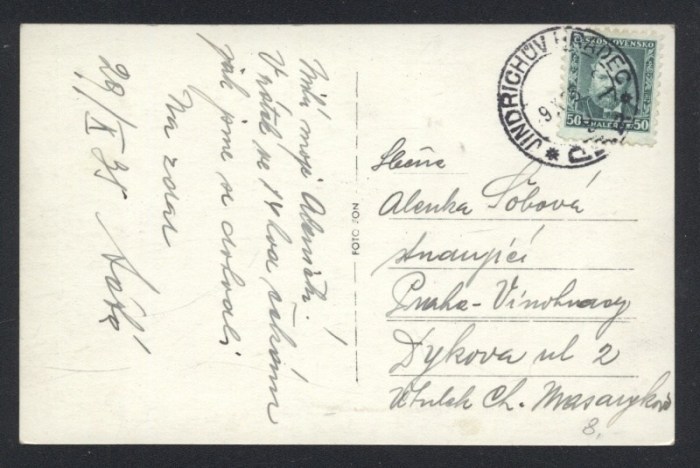 Milá moje Alenko.
Vrátil se 14 hod čekám
jak jsme se dohodli
Na zdar
28/X 35
FOTO FON
JINDŘICHŮV HRADEC
ČESKOSLOVENSKO
50 HALÉŘŮ 50
Slečna
Alenka Šobová
studující
Praha-Vinohrady
Dykova ul 2
Útulek Ch. Masarykové
8.